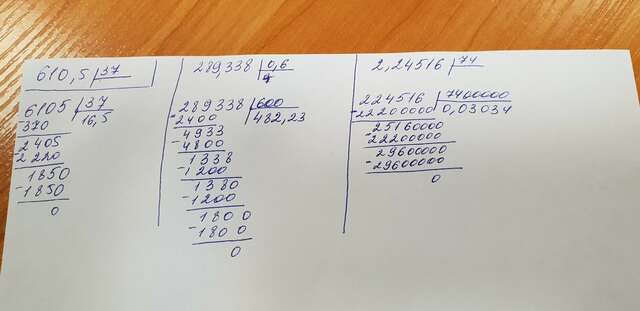 610,5 37
6105 37
-370 16,5
2405
-2220
1850
-1850
0
289,338 0,6
289338 600
-2400 482,23
4933
-4800
1338
-1200
1380
-1200
1800
-1800
0
2,24516 74
224516 7400000
-22200000 0,03034
-25160000
22200000
-29600000
-29600000
0